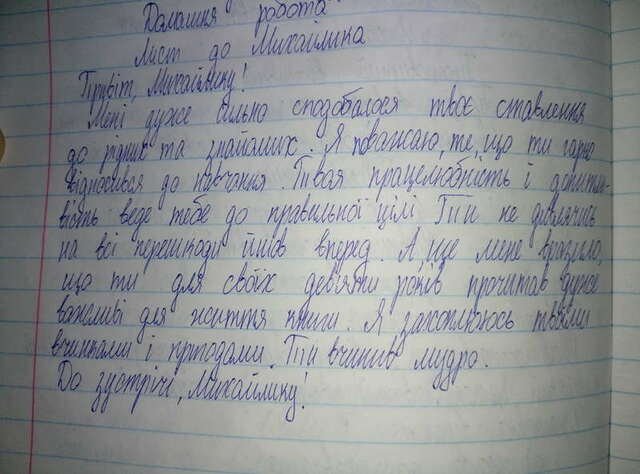 Домашня робота
Лист до Михайлика
Привіт, Михайлику!
Мені дуже сильно сподобалося твоє ставлення
до рідних та знайомих. Я поважаю, те, що ти гарно
відносився до навчання. Твоя працелюбність і допитли-
вість веде тебе до правильної цілі. Ти не дивлячись
на всі перешкоди йшов вперед. А ще мене вразило,
що ти для своїх дев'яти років прочитав дуже
важливі для життя книги. Я захоплююсь твоїми
вчинками і пригодами. Ти вчинив мудро.
До зустрічі, Михайлику!